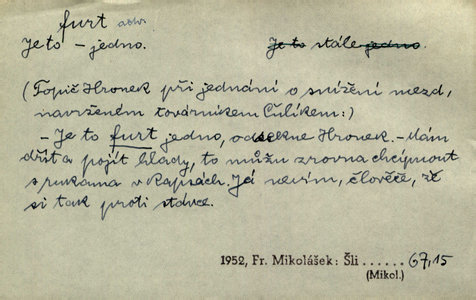 furt adv.
Je to – jedno. Je to stále jedno.
(Topič Hronek při jednání o snížení mezd,
navrženém továrníkem Čulíkem:)
– Je to furt jedno, odsekne Hronek. – Mám
dřít a pojít hlady, to můžu zrovna chcípnout
s rukama v kapsách. Já nevím, člověče, že
si tak proti stávce.
1952, Fr. Mikolášek: Šli ...... 67,15
(Mikol.)